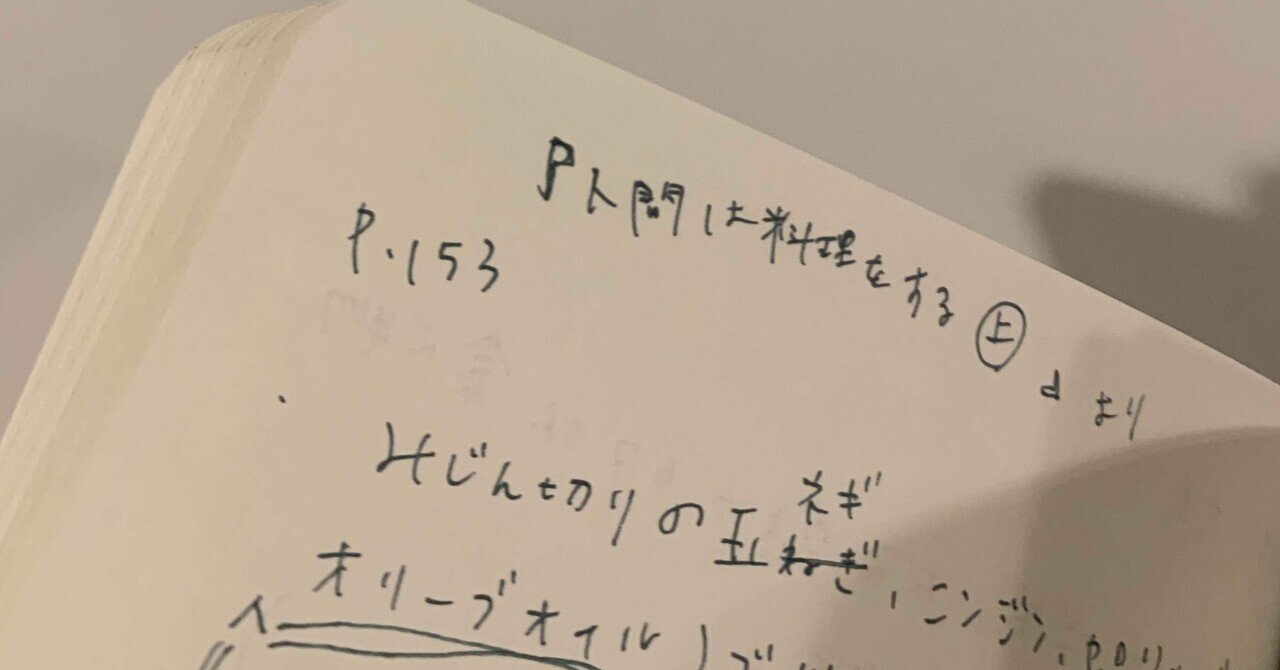 『人間は料理をする㊤』より
P.153
・みじん切りの玉ネギ、ニンジン、
オリーブオイル